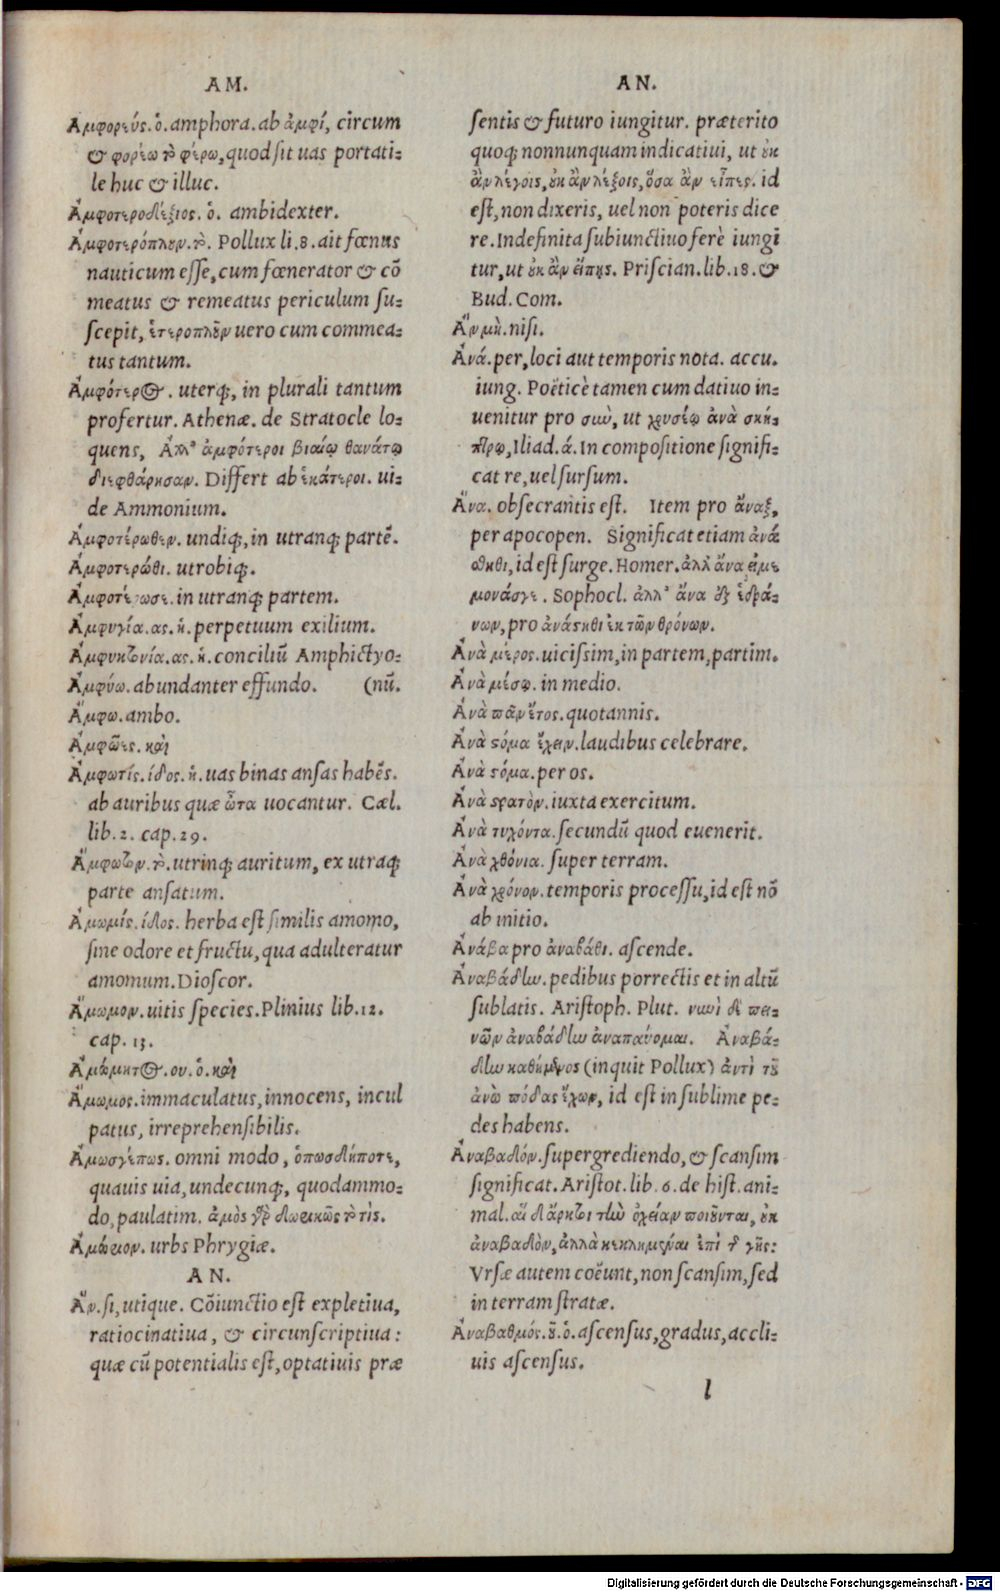 AM.
Ἀμφορεύς. ὁ. amphora. ab ἀμφί, circum
& φορέω τὸ φέρω, quod sit uas portati-
le huc & illuc.
Ἀμφοτεροδέξιος. ὁ. ambidexter.
Ἀμφοτερόπλουν. τὸ. Pollux li. 8. ait fœnus
nauticum esse, cum fœnerator & cō
meatus & remeatus periculum su-
scepit, ἑτεροπλοῦν uero cum commea-
tus tantum.
Ἀμφότερος. uterq;, in plurali tantum
profertur. Athenæ. de Stratocle lo-
quens, Ἀλλ' ἀμφότεροι βιαίῳ θανάτῳ
διεφθάρησαν. Differt ab ἑκάτεροι. ui-
de Ammonium.
Ἀμφοτέρωθεν. undiq;, in utranq; partē.
Ἀμφοτερώθι. utrobiq;.
Ἀμφοτέρωσε. in utranq; partem.
Ἀμφυγία. ας. ἡ. perpetuum exilium.
Ἀμφυκτονία. ας. ἡ. conciliū Amphictyo-
Ἀμφύω. abundanter effundo. (nū.
Ἄμφω. ambo.
Ἀμφῶες. καὶ
Ἀμφωτίς. ίδος. ἡ. uas binas ansas habēs.
ab auribus quæ ὦτα uocantur. Cæl.
lib. 2. cap. 29.
Ἄμφωτον. τὸ. utrinq; auritum, ex utraq;
parte ansatum.
Ἀμωμίς. ίδος. herba est similis amomo,
sine odore et fructu, qua adulteratur
amomum. Dioscor.
Ἄμωμον. uitis species. Plinius lib. 12.
cap. 13.
Ἀμώμητος. ου. ὁ. καὶ
Ἄμωμος. immaculatus, innocens, incul
patus, irreprehensibilis.
Ἀμωσγέπως. omni modo, ὁπωσδήποτε,
quauis uia, undecunq;, quodammo-
do, paulatim. ἀμὸς γὰρ δωρικῶς τὸ τὶς.
Ἀμώριον. urbs Phrygiæ.
AN.
Ἄν. si, utique. Cōiunctio est expletiua,
ratiocinatiua, & circunscriptiua:
quæ cū potentialis est, optatiuis præ
AN.
sentis & futuro iungitur. præterito
quoq; nonnunquam indicatiui, ut οὐκ
ἂν λέγοις, οὐκ ἂν λέξοις, ὅσα ἂν εἶπες. id
est, non dixeris, uel non poteris dice
re. Indefinita subiunctiuo ferè iungi
tur, ut οὐκ ἂν εἴπῃς. Priscian. lib. 18. &
Bud. Com.
Ἂν μὴ. nisi.
Ἀνά. per, loci aut temporis nota. accu.
iung. Poëticè tamen cum datiuo in-
uenitur pro σιὼ, ut χρυσέῳ ἀνὰ σκή-
πτρῳ, Iliad. ά. In compositione signifi-
cat re, uel sursum.
Ἄνα. obsecrantis est. Item pro ἄναξ,
per apocopen. Significat etiam ἀνά
στηθι, id est surge. Homer. ἀλλ ἄνα εἰ με
μονάσγε. Sophocl. ἀλλ' ἄνα ἐξ ἑδρά-
νων, pro ἀνάστηθι ἐκ τῶν θρόνων.
Ἀνὰ μέρος. uicissim, in partem, partim.
Ἀνὰ μέσῳ. in medio.
Ἀνὰ πᾶν ἔτος. quotannis.
Ἀνὰ στόμα ἔχειν. laudibus celebrare.
Ἀνὰ στόμα. per os.
Ἀνὰ στρατὸν. iuxta exercitum.
Ἀνὰ τυχόντα. secundū quod euenerit.
Ἀνὰ χθόνια. super terram.
Ἀνὰ χρόνον. temporis processu, id est nō
ab initio.
Ἀνάβα pro ἀναβάθι. ascende.
Ἀναβάδην. pedibus porrectis et in altū
sublatis. Aristoph. Plut. νυνὶ δὲ πει-
νῶν ἀναβάδην ἀναπαύομαι. Ἀναβά-
δην καθήμενος (inquit Pollux) ἀντὶ τοῦ
ἀνὼ πόδας ἔχων, id est in sublime pe-
des habens.
Ἀναβαδόν. supergrediendo, & scansim
significat. Aristot. lib. 6. de hist. ani-
mal. αἱ δ' ἄρκτοι τὴν ὀχείαν ποιοῦνται, οὐκ
ἀναβαδὸν, ἀλλὰ κεκλημέναι ἐπὶ τῆς γῆς:
Vrsæ autem coëunt, non scansim, sed
in terram stratæ.
Ἀναβαθμός. οῦ. ὁ. ascensus, gradus, accli-
uis ascensus.
l
Digitalisierung gefördert durch die Deutsche Forschungsgemeinschaft - DFG